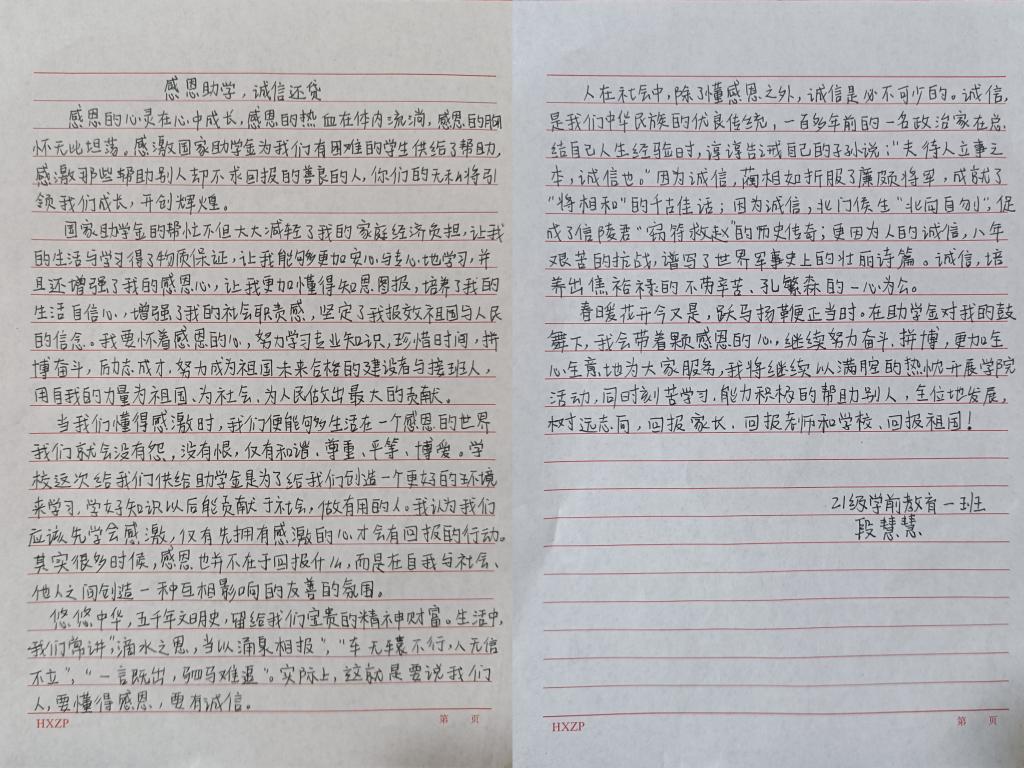 感恩助学，诚信还贷
感恩的心灵在心中成长，感恩的热血在体内流淌，感恩的胸
怀无比坦荡。感激国家助学金为我们有困难的学生供给了帮助，
感激那些帮助别人却不求回报的善良的人，你们的无私将引
领我们成长，开创辉煌。
国家助学金的帮忙不但大大减轻了我的家庭经济负担，让我
的生活与学习得了物质保证，让我能够更加安心与专心地学习，并
且还增强了我的感恩心，让我更加懂得知恩图报，培养了我的
生活自信心，增强了我的社会职责感，坚定了我报效祖国与人民
的信念。我要怀着感恩的心，努力学习专业知识，珍惜时间，拼
博奋斗，励志成才，努力成为祖国未来合格的建设者与接班人，
用自我的力量为祖国、为社会、为人民做出最大的贡献。
当我们懂得感激时，我们便能够生活在一个感恩的世界
我们就会没有怨，没有恨，仅有和谐、尊重、平等、博爱。学
校这次给我们供给助学金是为了给我们创造一个更好的环境
来学习，学好知识以后能贡献于社会，做有用的人。我认为我们
应该先学会感激，仅有先拥有感激的心才会有回报的行动。
其实很多时候，感恩也并不在于回报什么，而是在自我与社会、
他人之间创造一种互相影响的友善的氛围。
悠悠中华，五千年文明史，留给我们宝贵的精神财富。生活中，
我们常讲"滴水之恩，当以涌泉相报"，"车无辕不行，人无信
不立"，"一言既出，驷马难追"。实际上，这就是要说我们
人，要懂得感恩，更有诚信。
HXZP
第 页
人在社会中，除了懂感恩之外，诚信是必不可少的。诚信，
是我们中华民族的优良传统，一百多年前的一名政治家在总
结自己人生经验时，谆谆告诫自己的子孙说："夫待人立事之
本，诚信也。"因为诚信，蔺相如折服了廉颇将军，成就了
"将相和"的千古佳话；因为诚信，北门侯生"北向自刎"，促
成了信陵君"窃符救赵"的历史传奇；更因为人的诚信，八年
艰苦的抗战，谱写了世界军事史上的壮丽诗篇。诚信，培
养出焦裕禄的不劳辛苦、孔繁森的一心为公。
春暖花开今又是，跃马扬鞭便正当时。在助学金对我的鼓
舞下，我会带着颗感恩的心，继续努力奋斗、拼搏，更加全
心全意地为大家服务，我将继续以满腔的热忱开展学院
活动，同时刻苦学习，能力积极的帮助别人，全位地发展，
树远志向，回报家长、回报老师和学校、回报祖国！
21级学前教育一班
段慧慧
HXZP
第 页